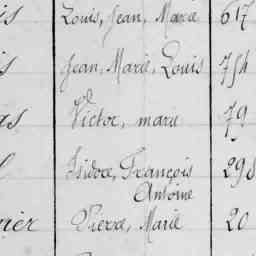 Louis, Jean, Marie 617
Jean, Marie, Louis 754
Victor, marie 79
Isidore, François 298
Antoine
Pierre, Marie 20